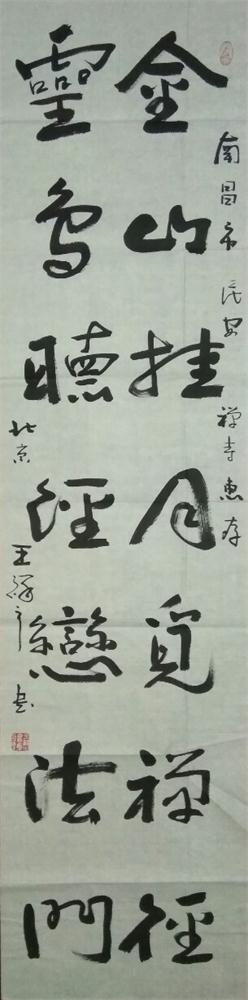 南昌市 民安 禪寺惠存
金山挂月覓禪徑
靈鳥聽經戀法門
北京 王